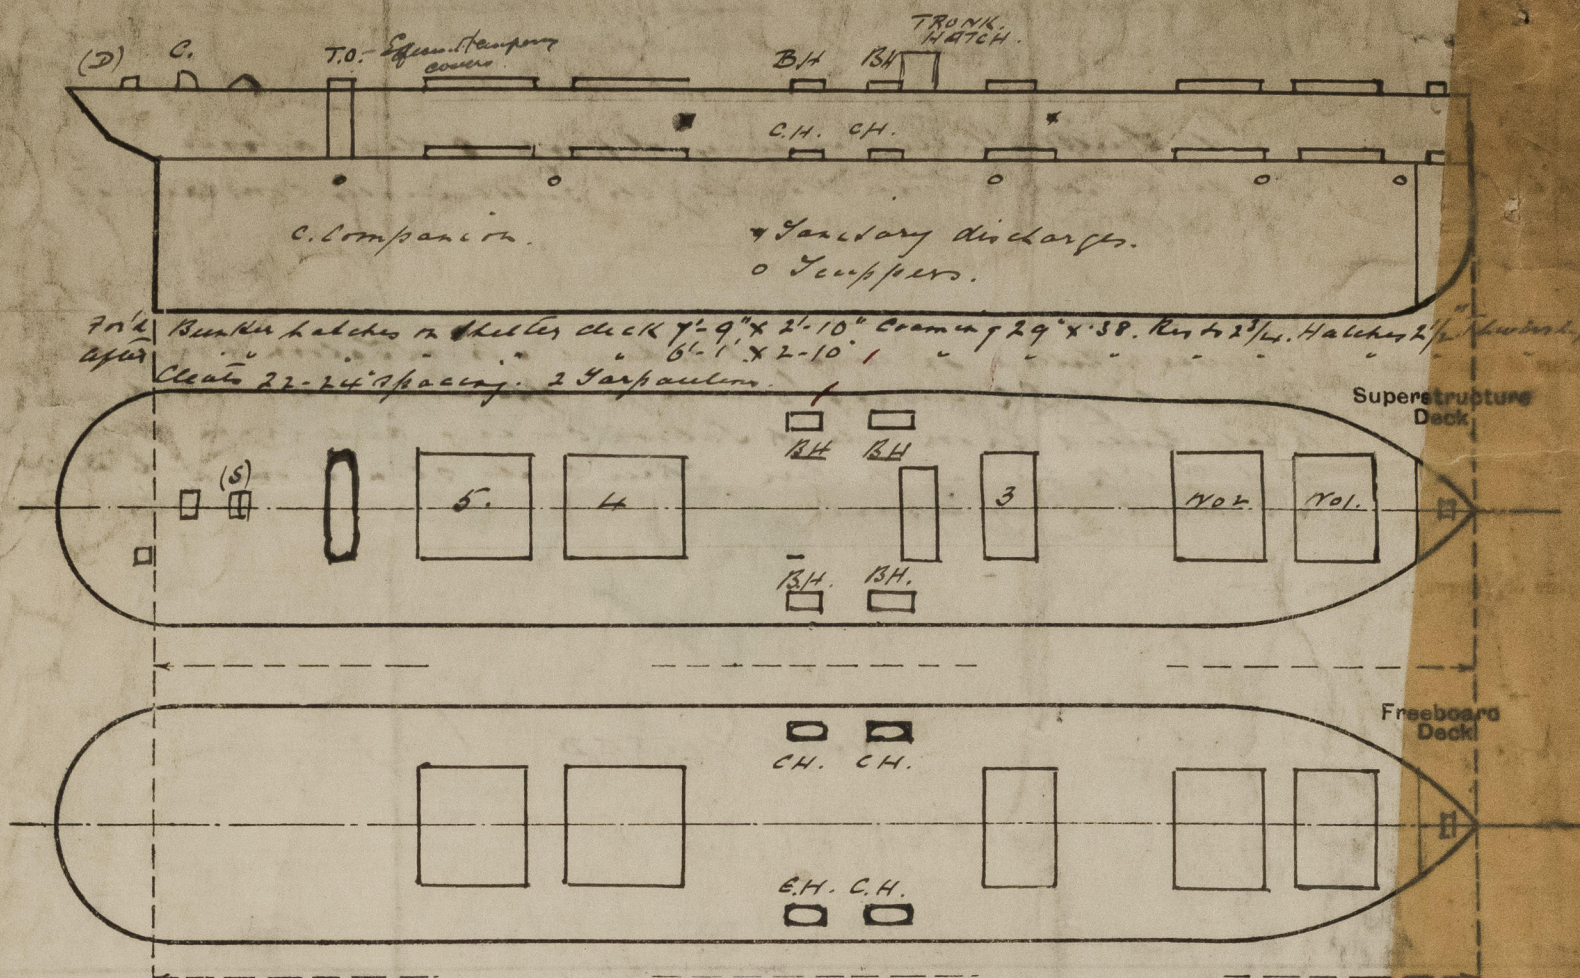 (D) C. T.O. - covers.
TRUNK.
HATCH.
B.H BH
C.H. CH.
C. Companion.
Sanitary discharges.
o Scuppers.
For'd Bunker hatches on Shelter deck 7'-9" x 2'-10" Coaming 29" x .38. Rests 2 3/4. Hatches 2 1/2"
After " " " " 6'-1" x 2-10" " " " " " "
Cleats 22-24" spacing. 2 Tarpaulins.
Superstructure
Deck
BH BH
(S)
5. 4 3 No 2 No1.
B.H. BH.
Freeboard
Deck
CH. CH.
C.H. C.H.